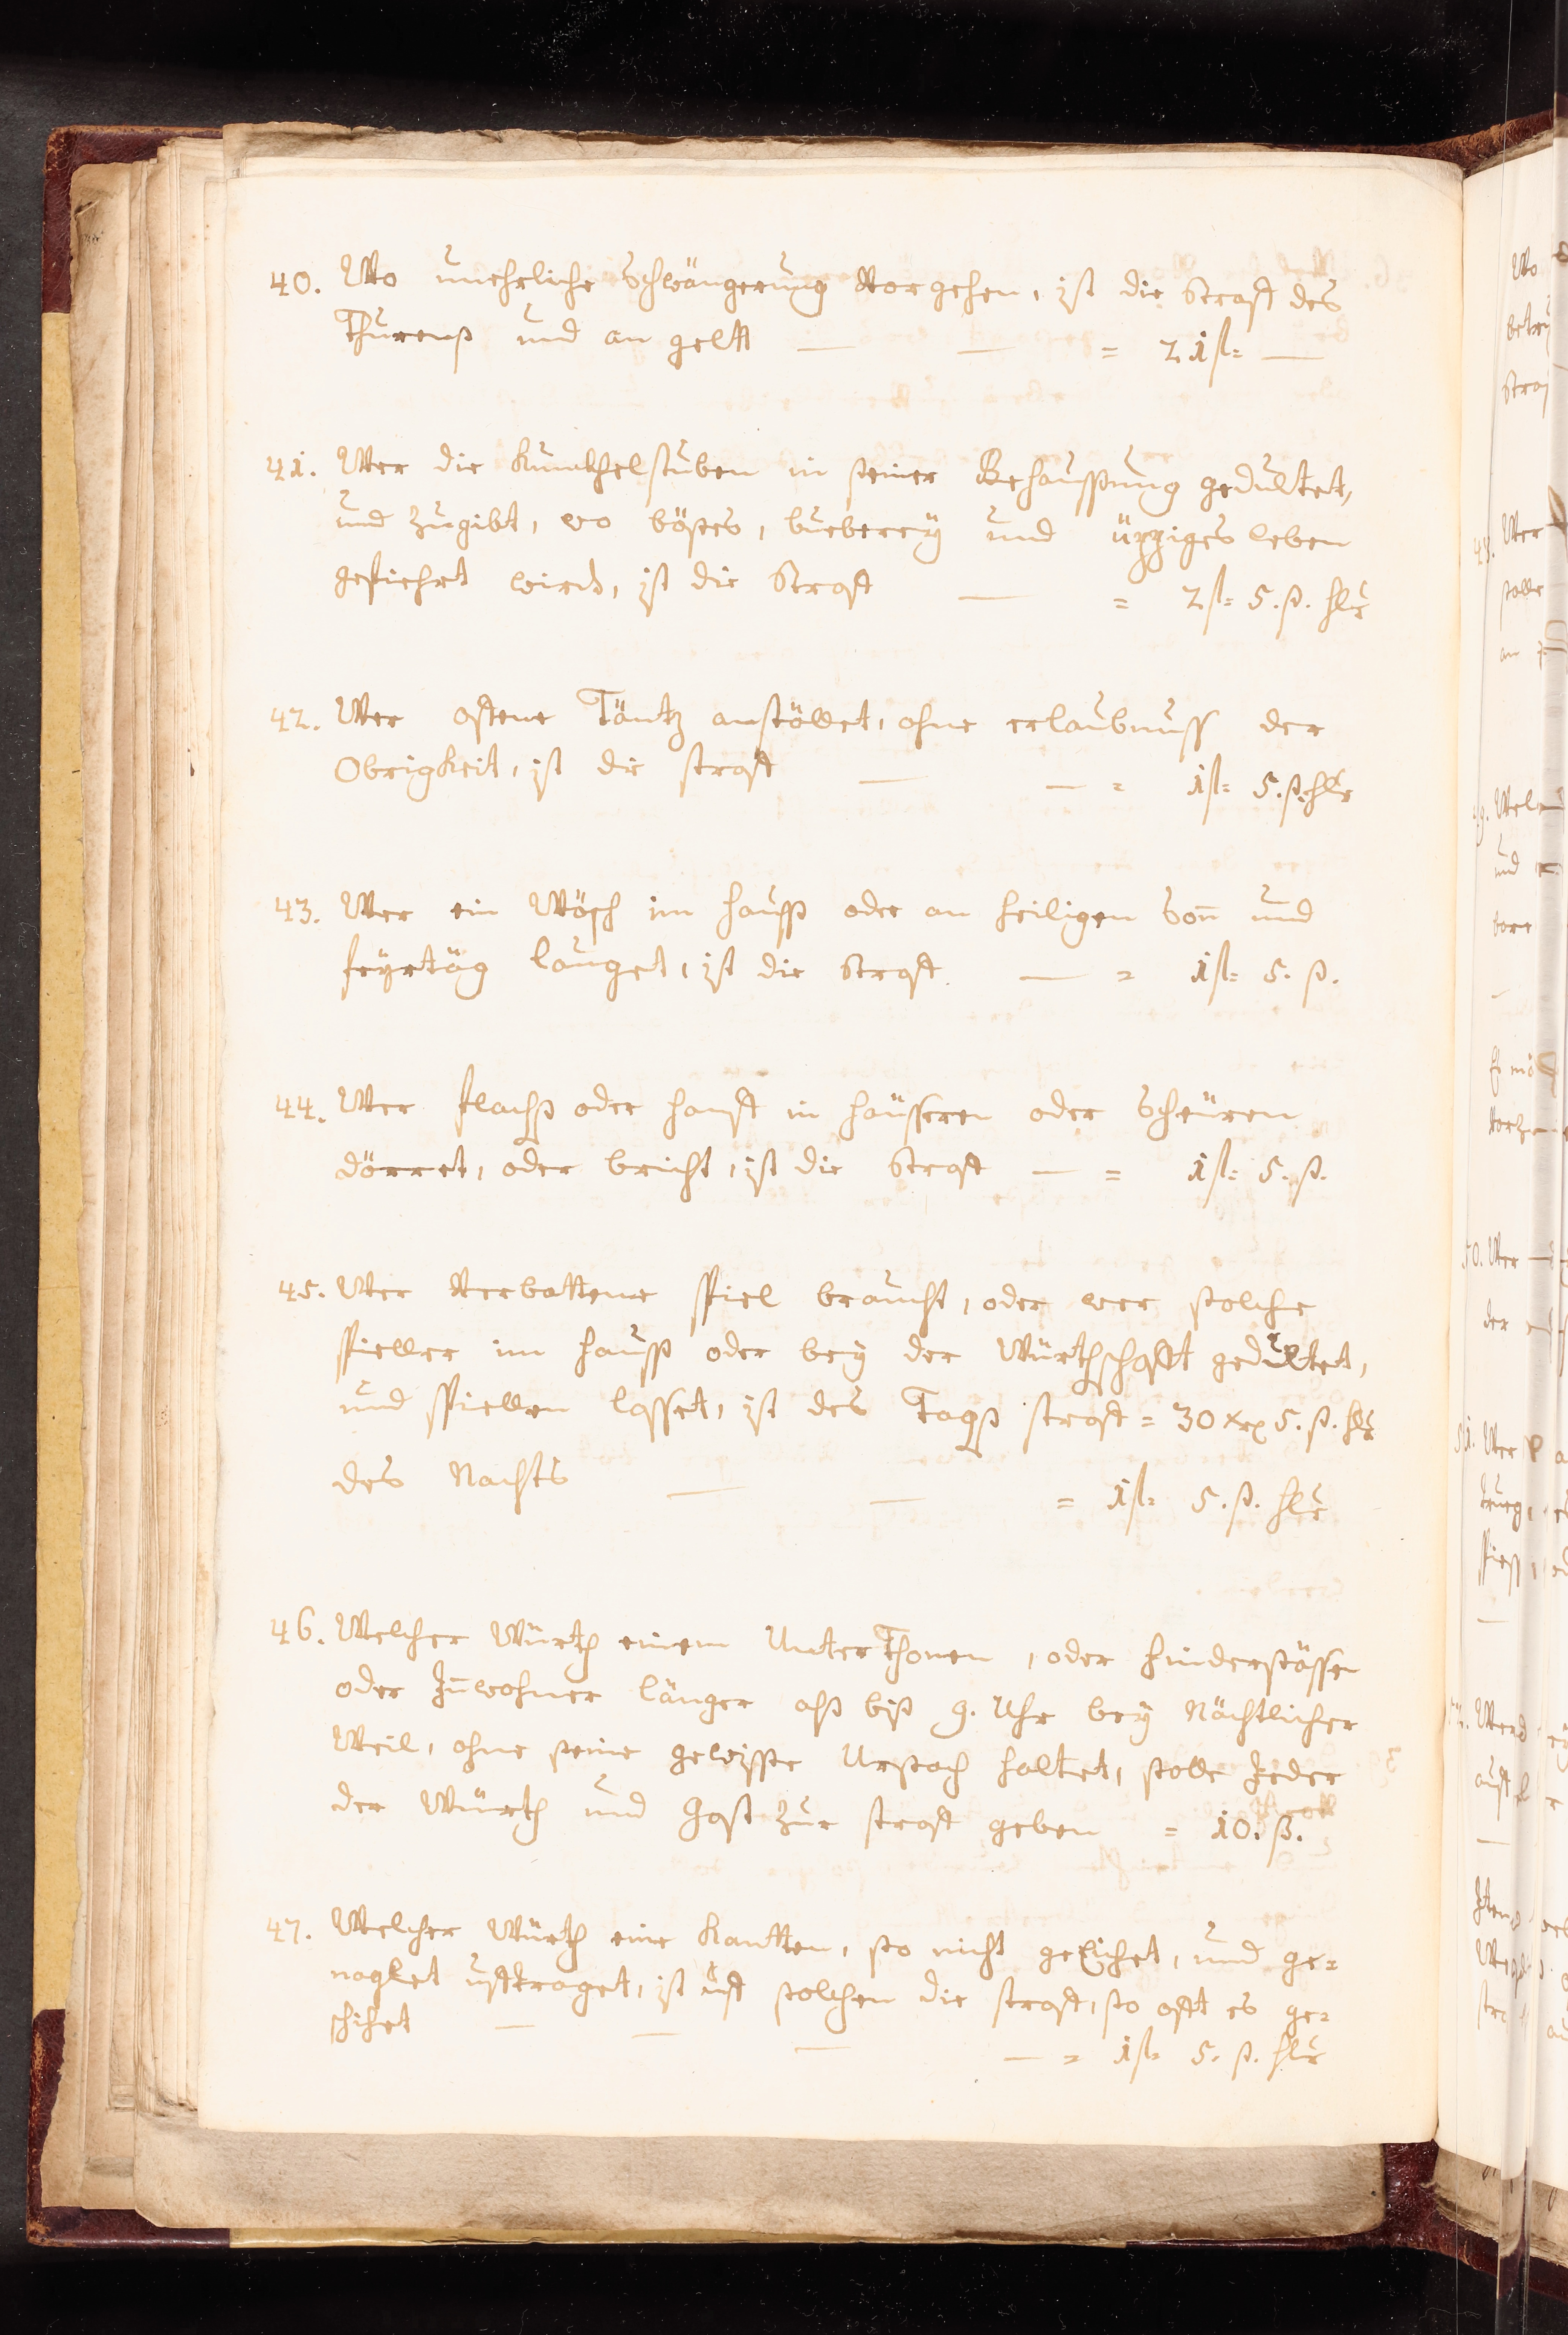 40. Wo unehrliche Schwängerung Vorgehen, ist die Straff des
Thurenß und an gellt — — = 21 fl= —
41. Wer die Kunckhelstuben in seiner Behaussung gedultet,
und zugibt, wo böses, bueberey und üppiges leben
gefiehrt wirdt, ist die Straff — = 2 fl= 5. ß. hlr
42. Wer offene Täntz anstöllet, ohne erlaubnuss der
Obrigkeit, ist die straff — — = 1 fl= 5. ß. hlr
43. Wer ein Wösch im hauss oder an heiligen Son̄ und
feyrtäg lauget, ist die Straff. — = 1 fl= 5. ß.
44. Wer flachß oder hanff in häusseren oder Scheüren
dörret, oder bricht, ist die Straff — = 1 fl= 5. ß.
45. Wer Verbottene spiel braucht, oder wer solche
spieller im hauss oder bey der Würthschafft gedultet,
und spiellen lasset, ist des Tagß straff = 30 xr 5. ß. hlr
des Nachts — — = 1 fl= 5. ß. hlr
46. Welcher Würth einem UnterThonen, oder hindersässen
oder In̄wohner länger alß biß 9. Uhr bey Nächtlicher
Weil, ohne seine gewisse Ursach haltet, solle Jeder
der Würth und Gast zur straff geben = 10. ß.
47. Welcher Würth eine Kantten, so nicht geEichet, und ge=
naglet ufftraget, ist uff solchen die straff, so offt es ge=
schihet — — — — = 1 fl= 5. ß. hlr